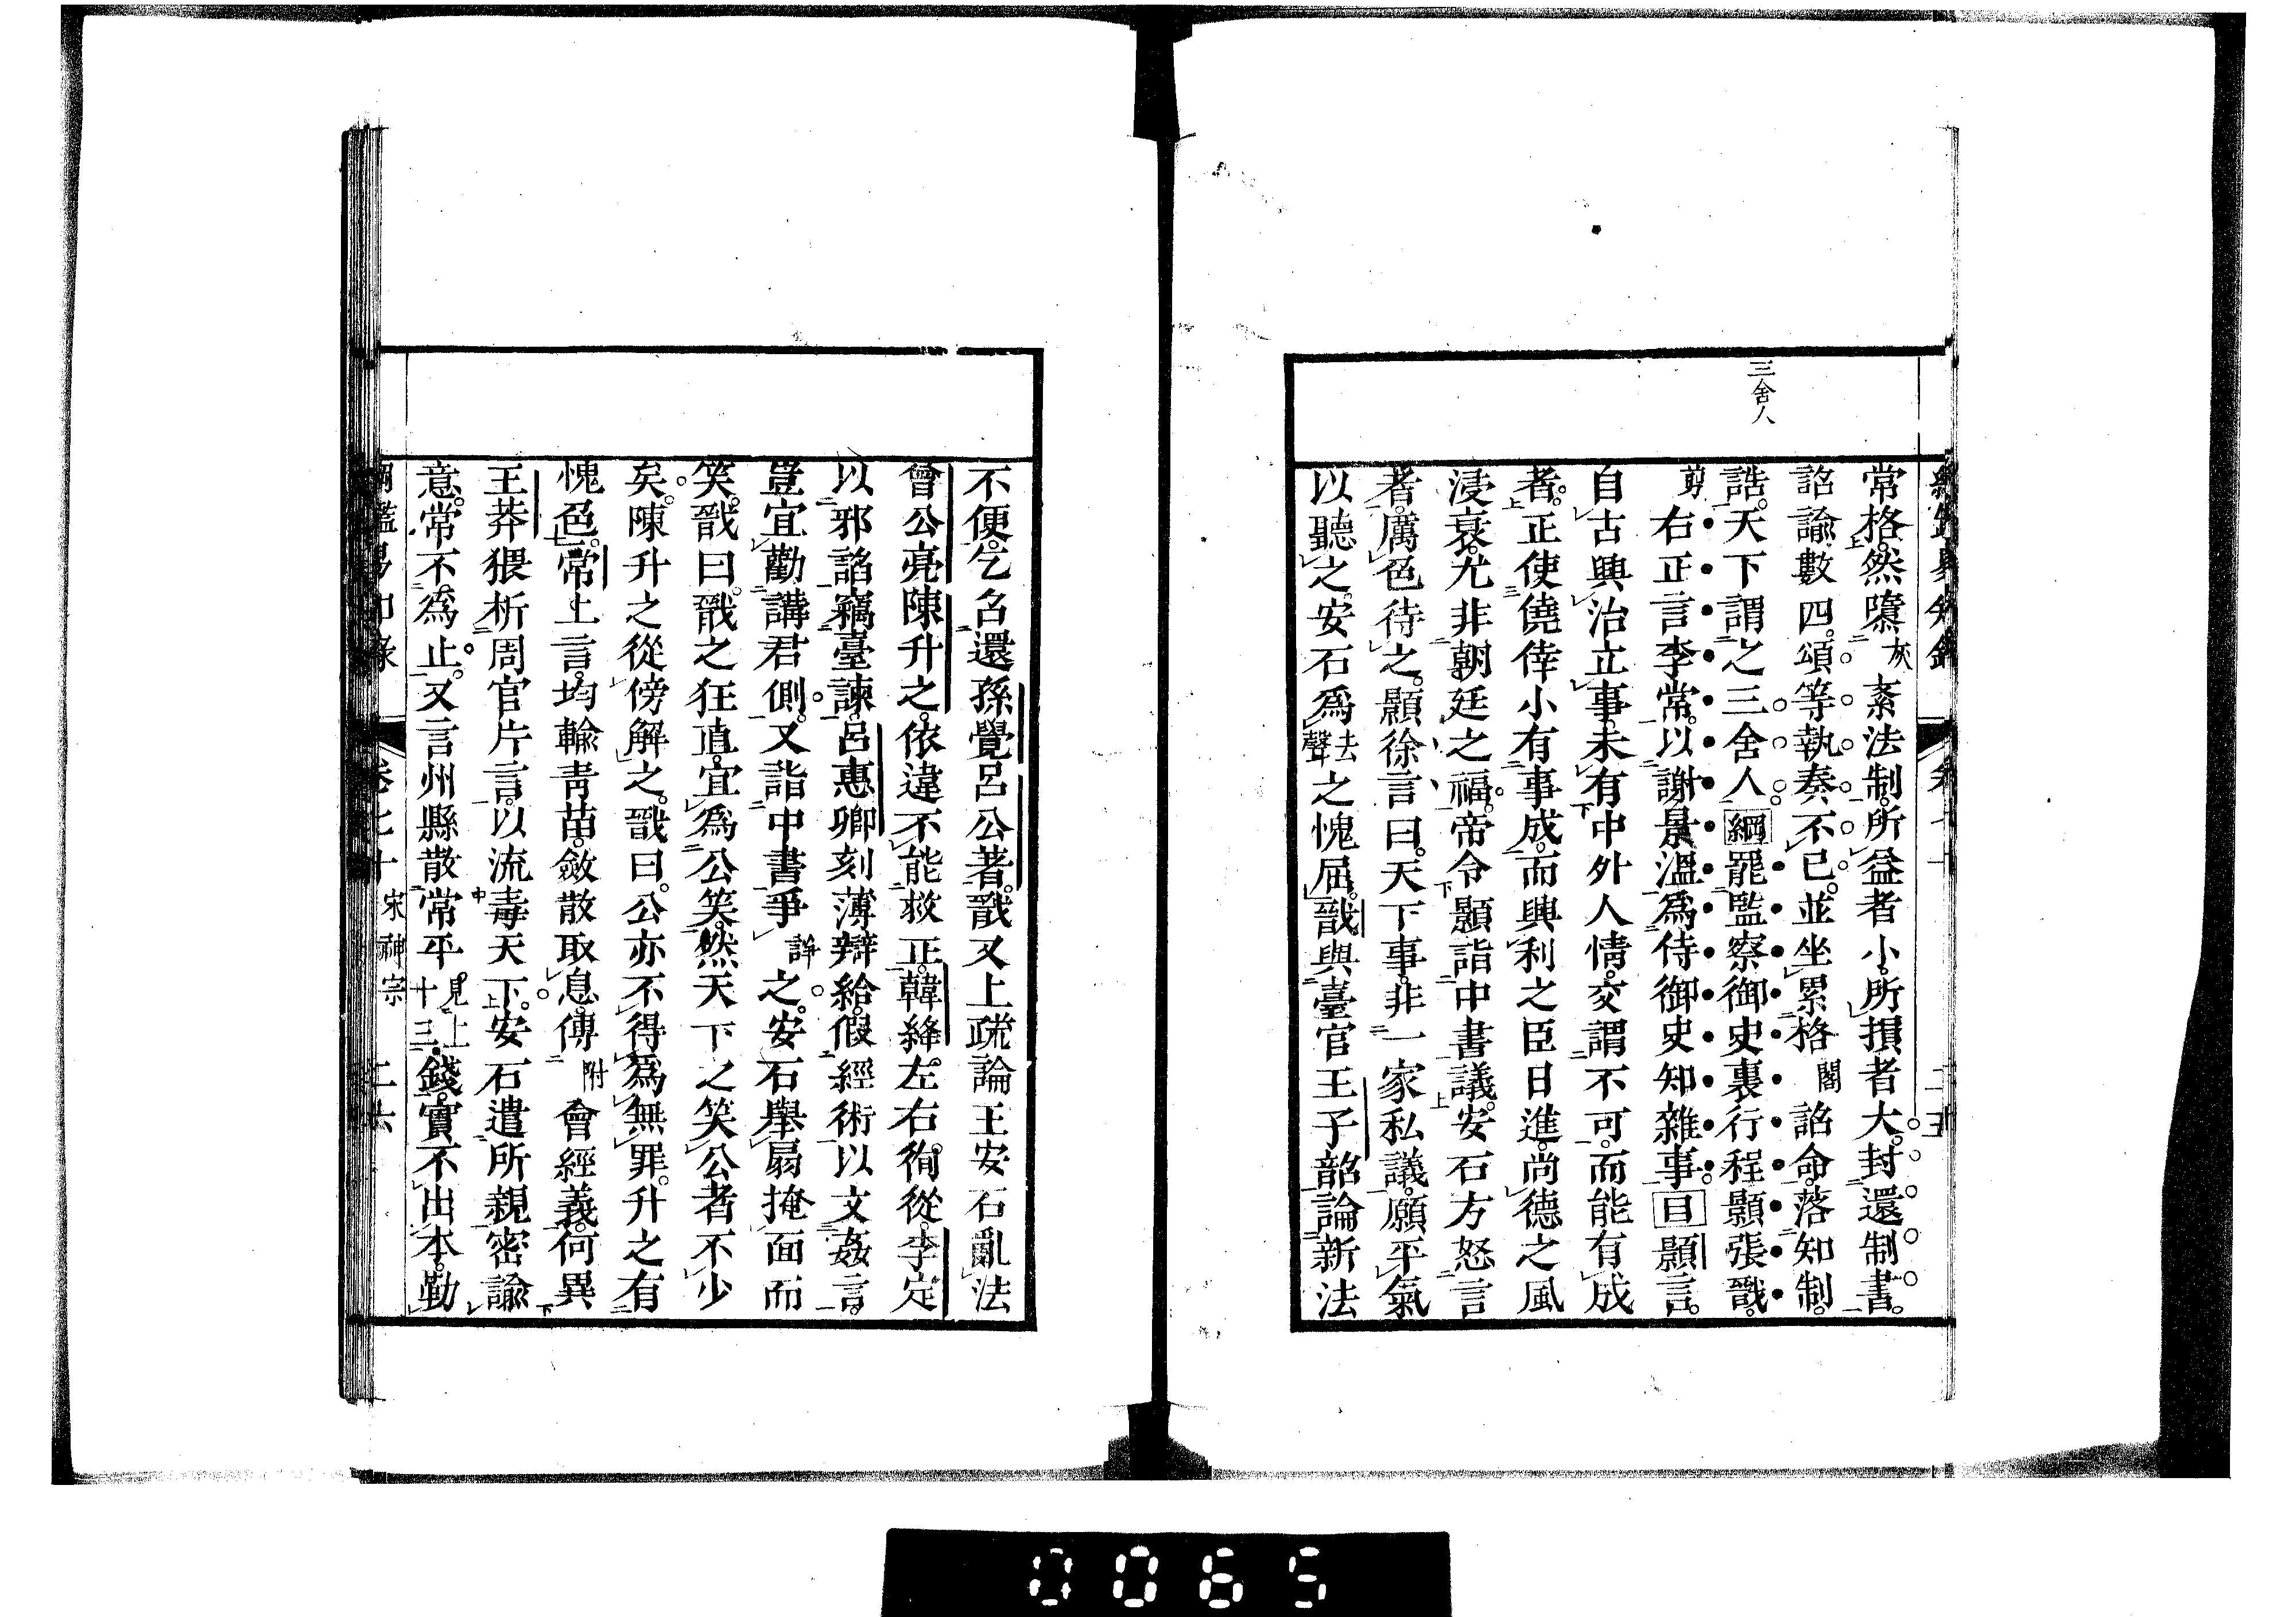 三舍人
常格。然隳灰紊法制。所益者小。所損者大。封還制書。
詔諭數四。頌等執奏不已。並坐累格閣詔命。落知制
誥。天下謂之三舍人。綱罷監察御史裏行程顥張戩。
剪右正言李常。以謝景溫爲侍御史知雜事。目顥言。
自古興治立事。未有中外人情。交謂不可。而能有成
者。正使僥倖小有事成。而興利之臣日進。尚德之風
浸衰。尤非朝廷之福。帝令顥詣中書議。安石方怒言
者。厲色待之。顥徐言曰。天下事。非一家私議。願平氣
以聽之。安石爲去聲之愧屈。戩與臺官王子韶論新法
不便。乞召還孫覺呂公著。戩又上疏論王安石亂法
曾公亮陳升之。依違不能救正。韓絳。左右徇從。李定
以邪諂竊臺諫。呂惠卿刻薄辯給。假經術以文姦言。
豈宜勸講君側。又詣中書爭諍之。安石舉扇掩面而
笑。戩曰。戩之狂直。宜爲公笑。然天下之笑公者不少
矣。陳升之從傍解之。戩曰。公亦不得爲無罪。升之有
愧色。常上言。均輸青苗。斂散取息。傅附會經義。何異
王莽猥析周官片言。以流毒天下。安石遣所親密諭
意。常不爲止。又言州縣散常平見上十三錢。實不出本。勒
卷七十 宋神宗 二六
0065